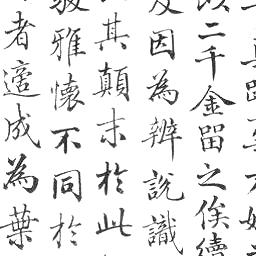 二千金留之俟續
因為辨說識
其顛末於此
雅懷不同於
者適成為葉